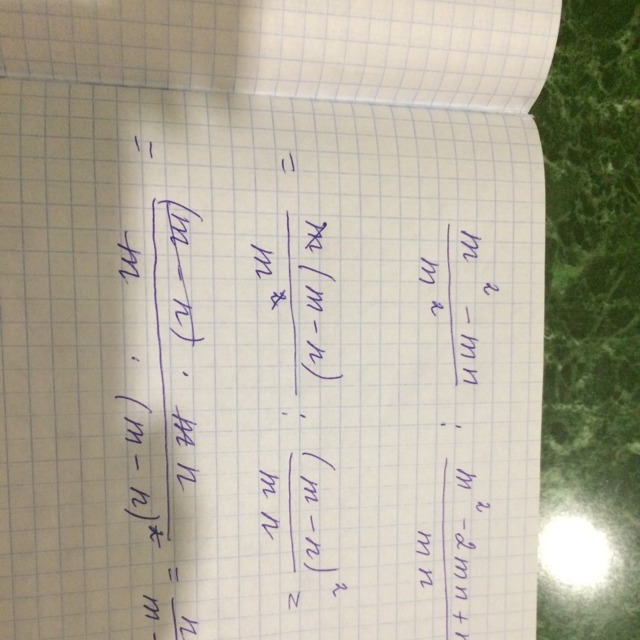 m² - mn / m² : m² - 2mn + n / mn
= m(m-n) / m² : (m-n)² / mn =
= (m-n) · mn / m · (m-n)² = n / m -